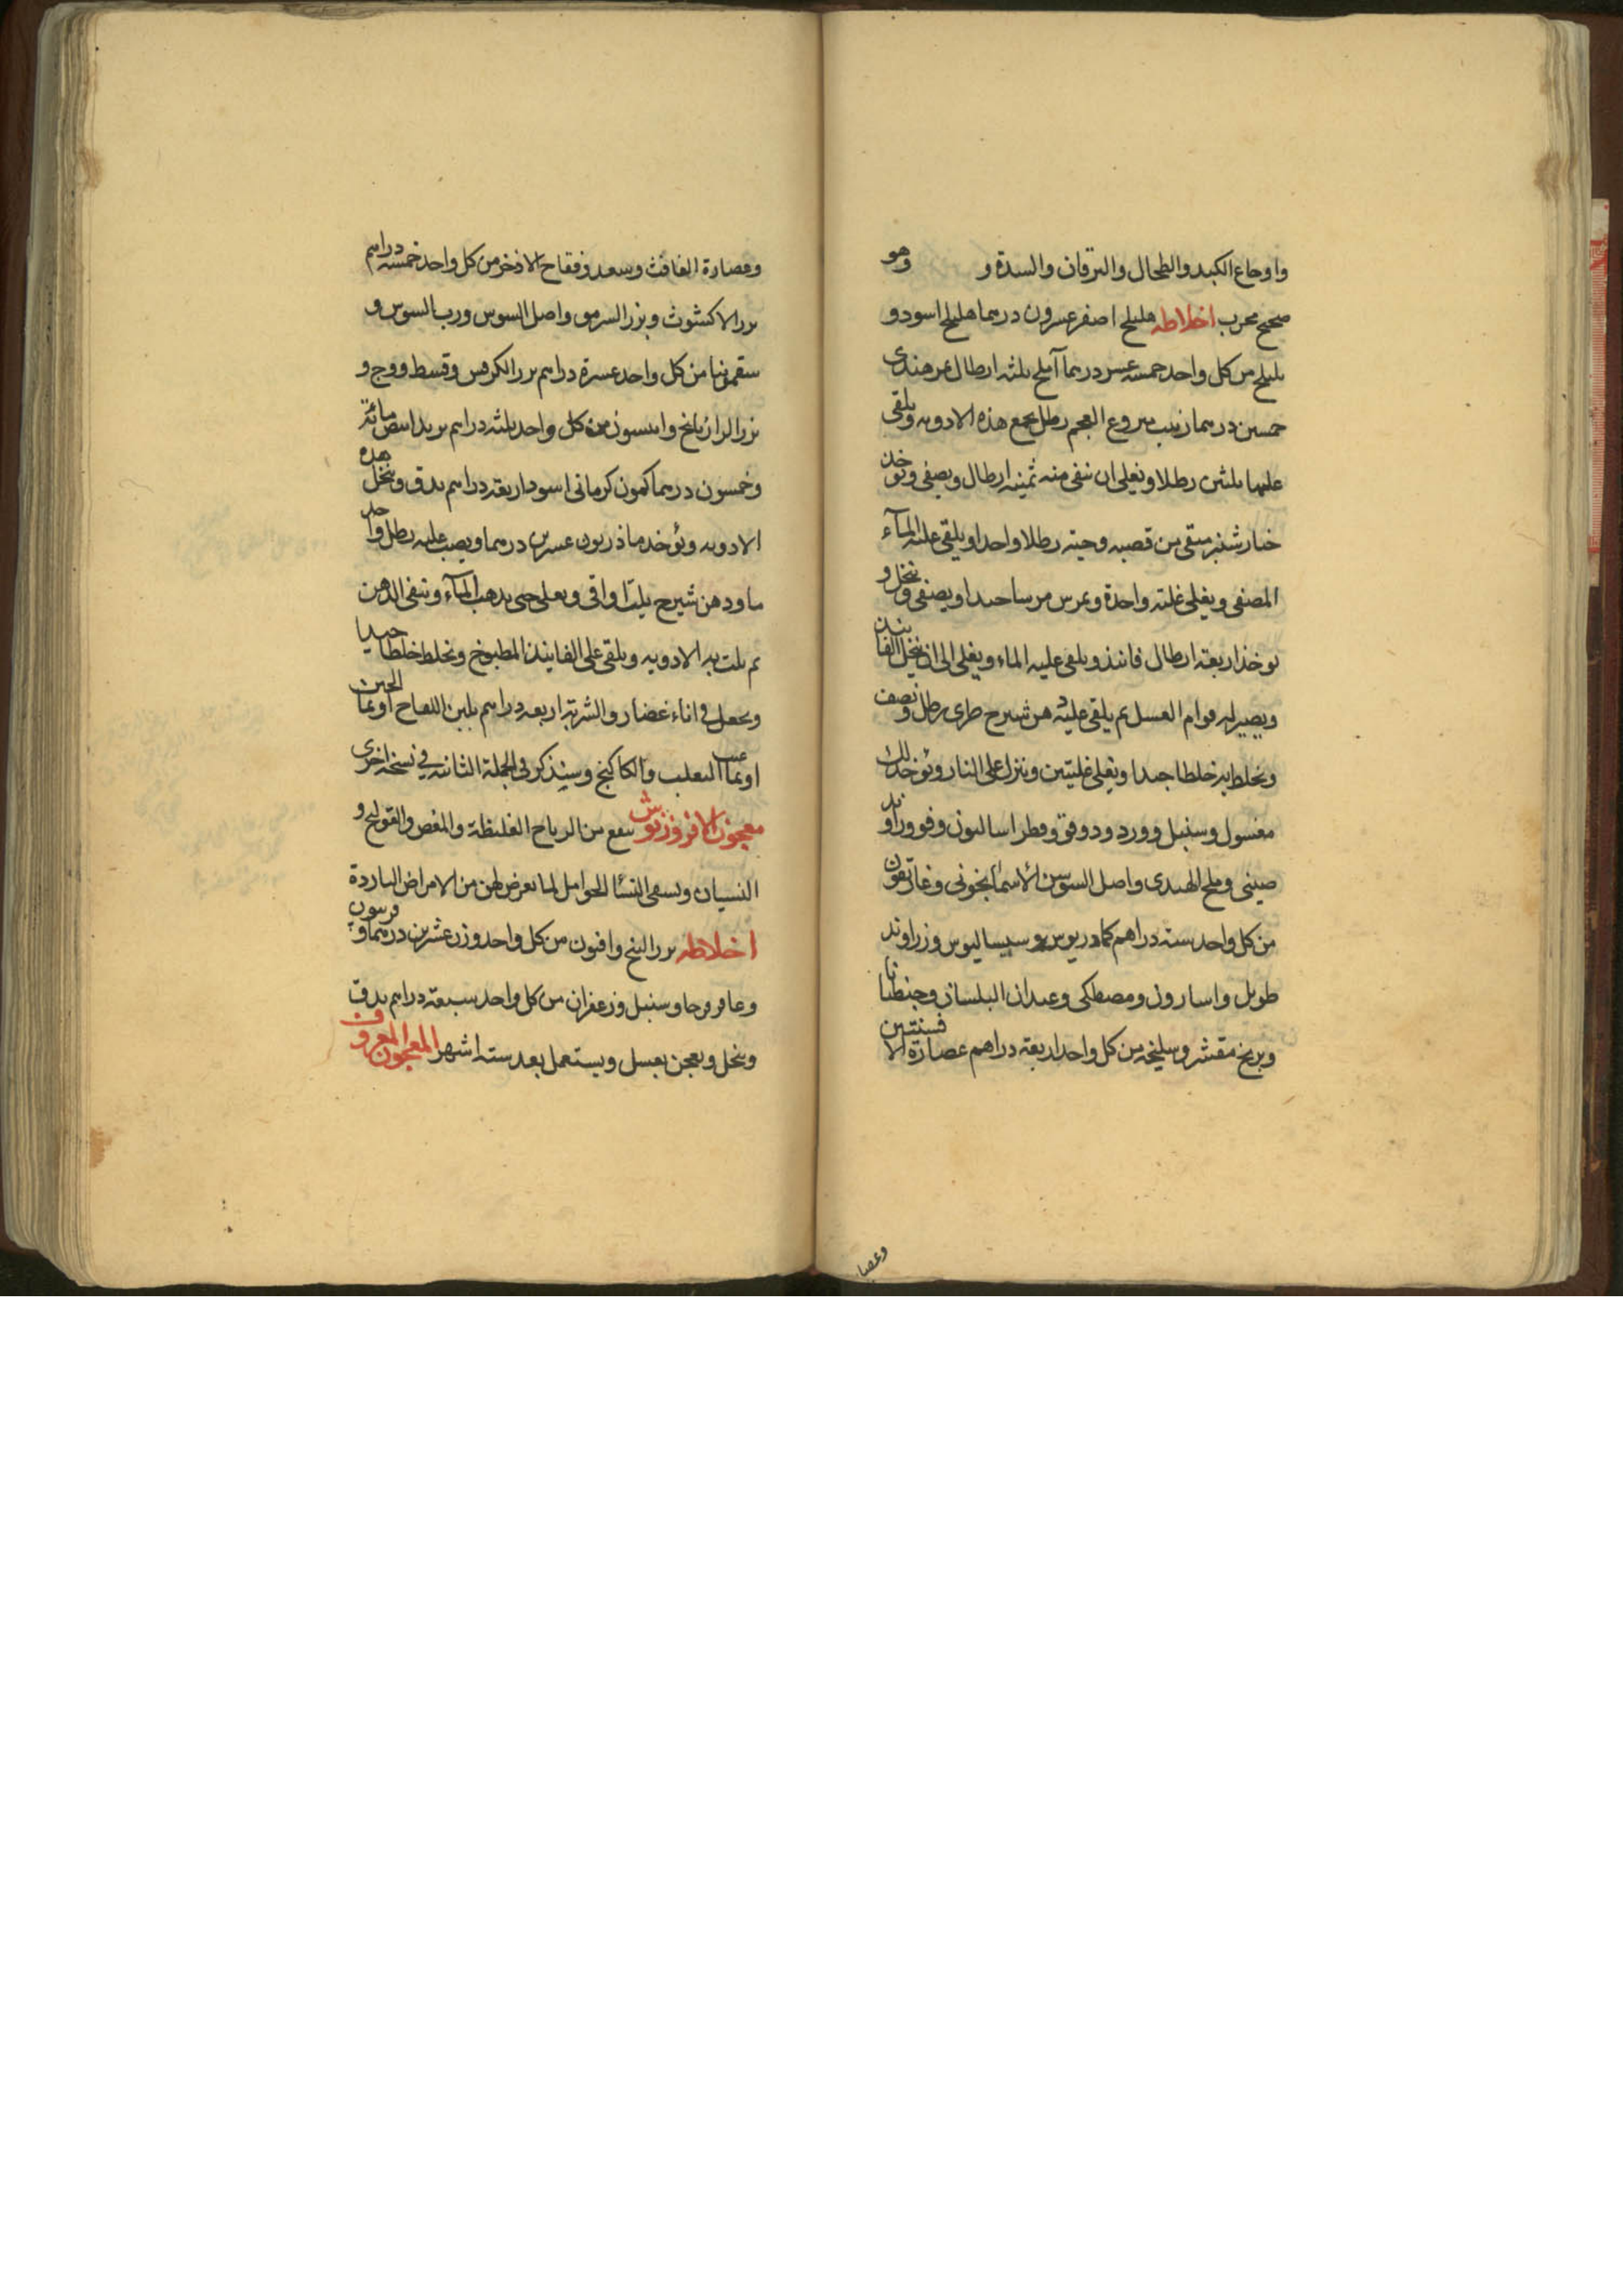 واوجاع الكبد والطحال واليرقان والسدة و وهو
صحيح مجرب اخلاطه هليلج اصفر عشرون درهما هليلج اسود و
بليلج من كل واحد خمسة عشر درهما آملج ثلثه ارطال تمر هندى
خمسين درهما زبيب منزوع العجم رطل يجمع هذه الادويه ويلقى
عليها ثلثين رطلا ويغلى ان تبقى منه ثمنيه ارطال ويصفى ويوخذ
خيارشنبر منقى من قصبه وحبه رطلا واحدا ويلقى عليه المآء
المصفى ويغلى غليه واحدة ويمرس مرسا جيدا ويصفى وينخل و
يوخذ اربعة ارطال فانيذ ويلقى عليه الماء ويغلى الى ان ينخل الفانيذ
ويصير له قوام العسل ثم يلقى عليه دهن شيرج طرى رطل ونصف
ويخلط به خلطا جيدا ويغلى غليتين وينزل على النار ويؤخذ لك
مغسول وسنبل وورد ودوقو وفطراساليون وفو وراوند
صينى وملح الهندى واصل السوسن الاسمآنجونى وغاريقون
من كل واحد سته دراهم كمادريوس وسيساليوس وزراوند
طويل واسارون ومصطكى وعيدان البلسان وجنطيانا
وبرنج مقشر وسليخه من كل واحد اربعة دراهم عصارة الافسنتين
وعصا
وعصارة الغافث وسعد وفقاح الاذخر من كل واحد خمسه دراهم
بزر الاكشوث وبزر السرمق واصل السوس ورب السوس و
سقمونيا من كل واحد عشرة دراهم بزر الكرفس وقسط ووج و
بزر الرازيانج وانيسون من كل واحد ثلثه دراهم تربد ابيض مائة
وخمسون درهما كمون كرمانى اسود اربعة دراهم يدق وينخل هذه
الادويه ويؤخذ ماذريون عشرين درهما ويصب عليه رطل واحد
ما ودهن شيرج ثلث اواقى ويغلى حتى يذهب المآء وتبقى الدهن
ثم يلت به الادويه ويلقى على الفانيذ المطبوخ ويخلط خلطا جيدا
ويجعل فى اناء غضار والشربة اربعه دراهم بلبن اللقاح او بمآ الجبن
او بمآ عنب الثعلب والكاكنج وسنذكر فى الجملة الثانيه فى نسخه اخرى
معجون الافروزنوش ينفع من الرياح الغليظة والمغص والقولنج و
النسيان ويسقى النسآ الحوامل لما يعرض لهن من الامراض الباردة
اخلاطه بزر البنج وافيون من كل واحد وزن عشرين درهما وفربيون
وعاقرقرحا وسنبل وزعفران من كل واحد سبعة دراهم يدق
وينخل ويعجن بعسل ويستعمل بعد سته اشهر المعجون المعروف